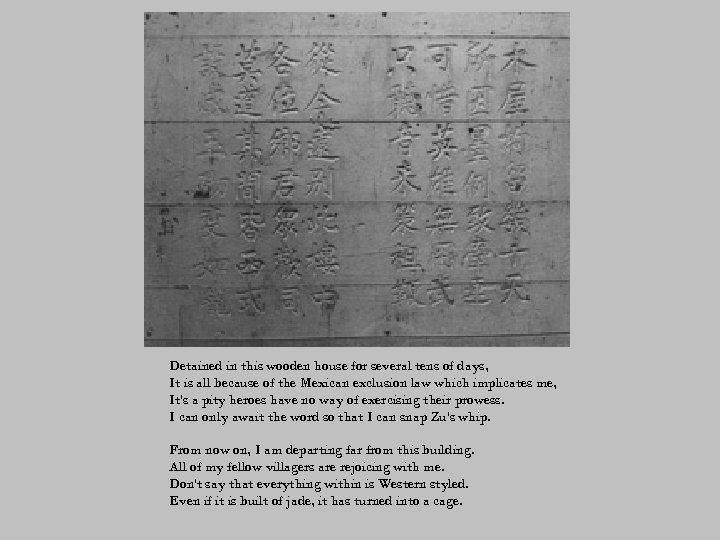 木屋拘留幾十天
所囚墨例致牽連
可惜英雄無用武
只聽音來策祖鞭
從今遠別此樓中
各位鄉君眾歡同
莫道其間皆西式
設成玉砌變如籠
Detained in this wooden house for several tens of days,
It is all because of the Mexican exclusion law which implicates me,
It's a pity heroes have no way of exercising their prowess.
I can only await the word so that I can snap Zu's whip.
From now on, I am departing far from this building.
All of my fellow villagers are rejoicing with me.
Don't say that everything within is Western styled.
Even if it is built of jade, it has turned into a cage.